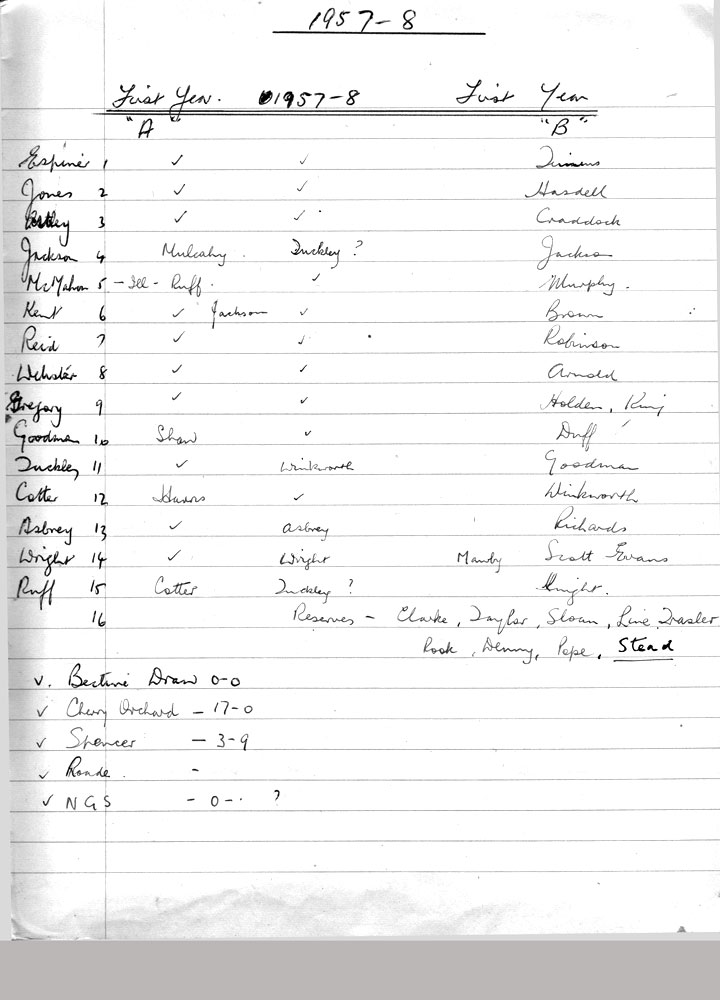 1957-8
First Year. 1957-8 First Year
"A" "B"
Espiner 1 ✓ ✓ Timms
Jones 2 ✓ ✓ Hasdell
3 ✓ ✓ Craddock
Jackson 4 Mulcahy. Tuckley? Jackson
McMahon 5 - Ill - Ruff. ✓ Murphy.
Kent 6 ✓ Jackson ✓ Brown
Reid 7 ✓ ✓ Robinson
Webster 8 ✓ ✓ Arnold
Gregory 9 ✓ ✓ Holden, King
Goodman 10 Shaw ✓ Duff
Tuckley 11 ✓ Winkworth Goodman
Cotter 12 Harris ✓ Winkworth
Asbrey 13 ✓ Asbrey Richards
Wright 14 ✓ Wright Mawby Scott Evans
Ruff 15 Cotter Tuckley? Knight.
16 Reserves - Clarke, Taylor, Sloan, Line, Trasler
Rook, Denny, Pope, Stead
v. Bective Draw 0-0
✓ Cherry Orchard - 17-0
✓ Spencer - 3-9
✓ Roade. -
✓ NGS - 0-. ?